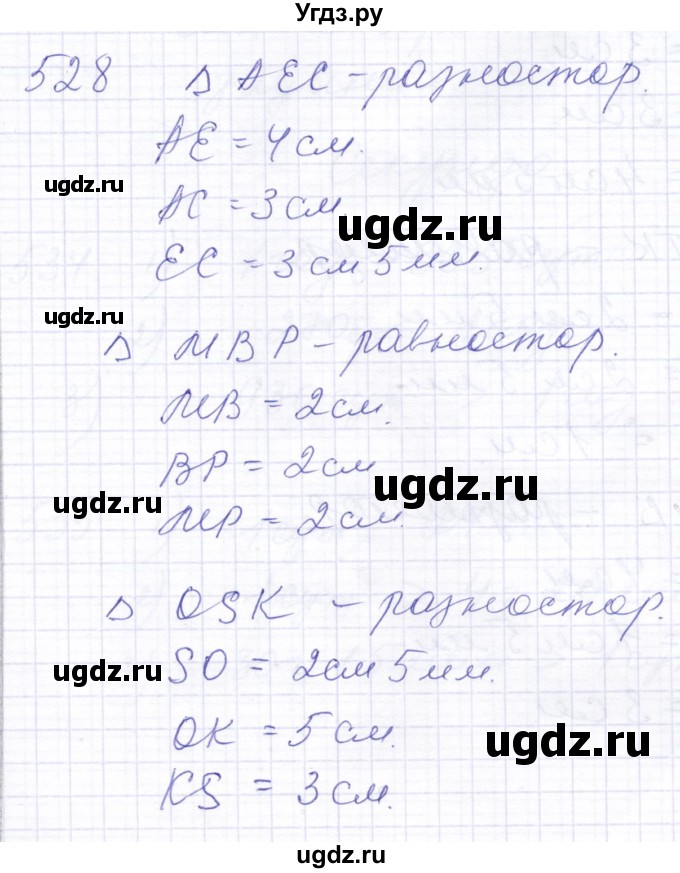 Угдз.ру
528 Δ AEC – разностор.
AE = 4 см.
ugdz.ru
AC = 3 см
ugdz.ru
EC = 3 см 5 мм.
ugdz.ru
Δ MBP – равностор.
MB = 2 см.
BP = 2 см
ugdz.ru
ugdz.ru
MP = 2 см.
Δ OSK – разностор.
ugdz.ru
SO = 2 см 5 мм.
OK = 5 см.
ugdz.ru
KS = 3 см.
ugdz.ru